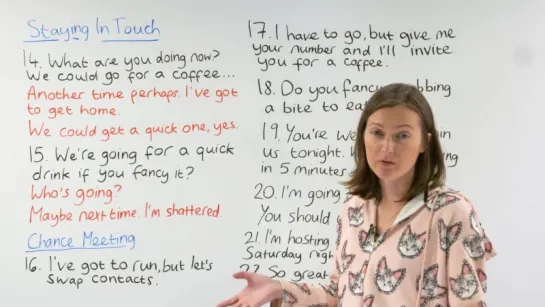 Staying In Touch
14. What are you doing now?
We could go for a coffee...
Another time perhaps. I've got
to get home.
We could get a quick one, yes.
15. We're going for a quick
drink if you fancy it?
Who's going?
Maybe next time. I'm shattered.
Chance Meeting
16. I've got to run, but let's
swap contacts.
17. I have to go, but give me
your number and I'll invite
you for a coffee.
18. Do you fancy
a bite to
19. You're
us tonight.
in 5 minutes
20. I'm going
You should
21. I'm hosting
Saturday
22. So great